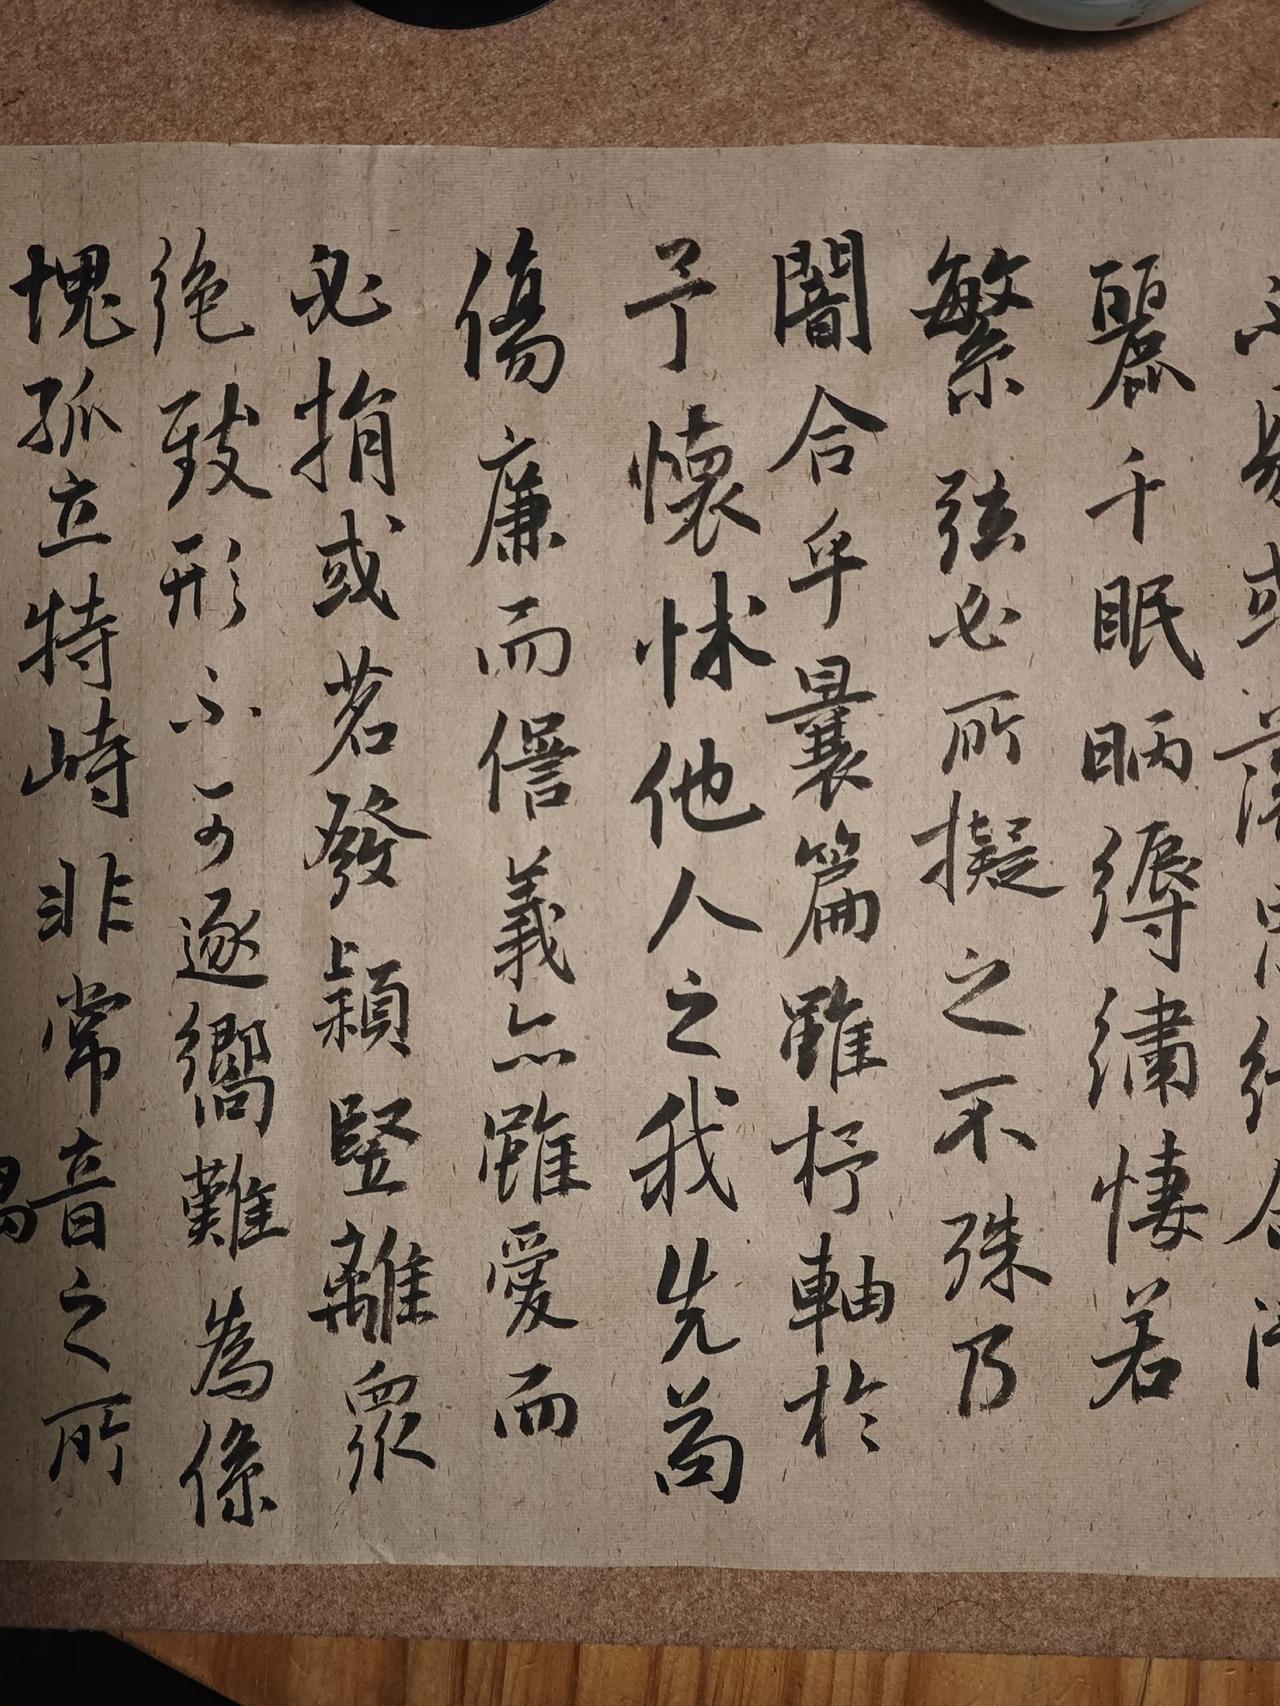 不易或藻思綺合清
麗千眠昞縟繡悽若
繁弦必所擬之不殊乃
闇合乎曩篇雖杼軸於
予懷怵他人之我先苟
傷廉而諐義亦雖愛而
必捐或苕發穎豎離眾
絕致形不可逐嚮難為係
愧孤立特峙非常音之所